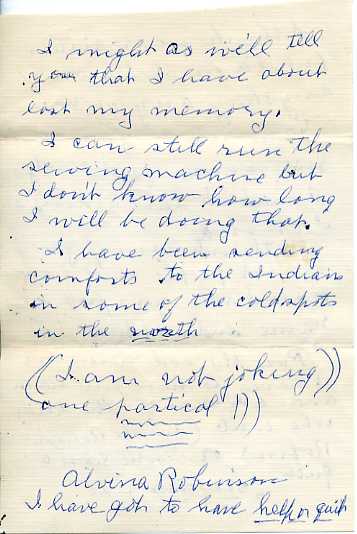 I might as well tell
you that I have about
lost my memory.
I can still run the
sewing machine but
I don't know how long
I will be doing that.
I have been sending
comforts to the Indians
in some of the coldspots
in the north
((I am not joking))
one partical !))
Alvina Robinson
I have got to have help or quit